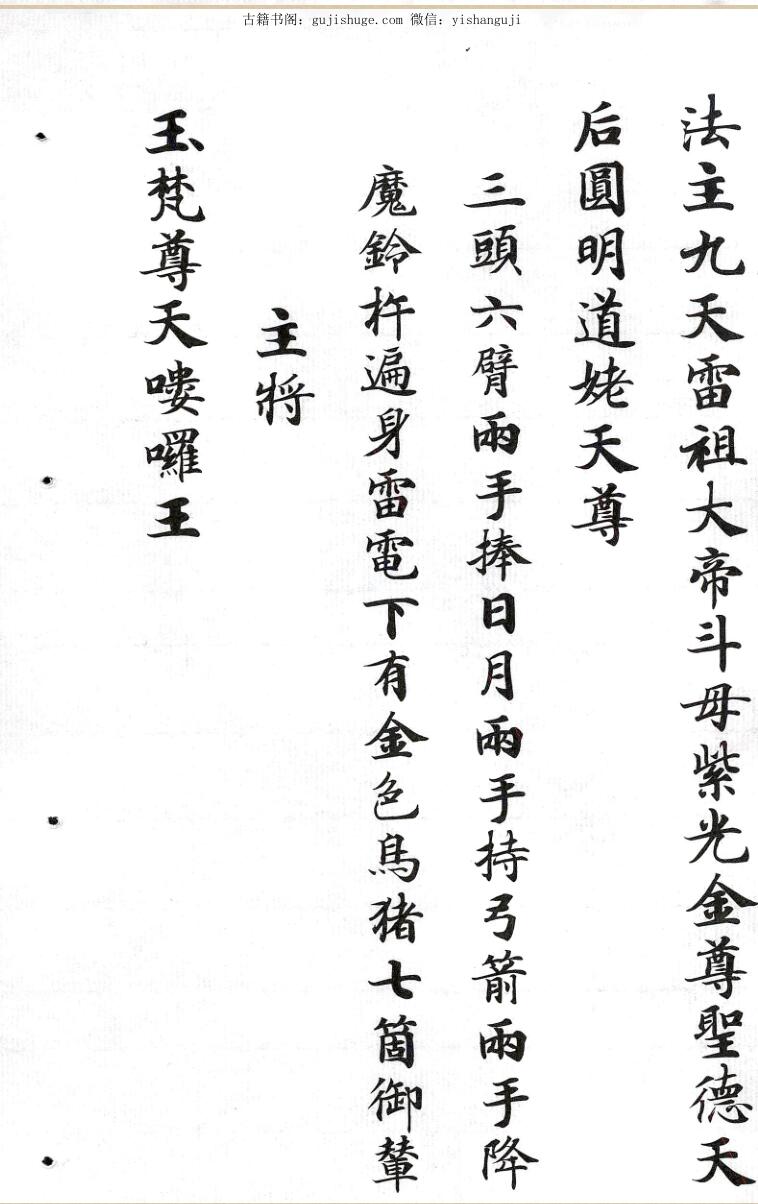 古籍书阁：gujishuge.com 微信：yishanguji
法主九天雷祖大帝斗母紫光金尊聖德天
后圓明道姥天尊
三頭六臂兩手捧日月兩手持弓箭兩手降
魔鈴杵遍身雷電下有金色鳥猪七箇御輦
主將
玉梵尊天嘍囉王